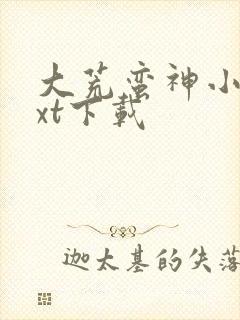 大荒蛮神小
xt下载
迦太基的失落